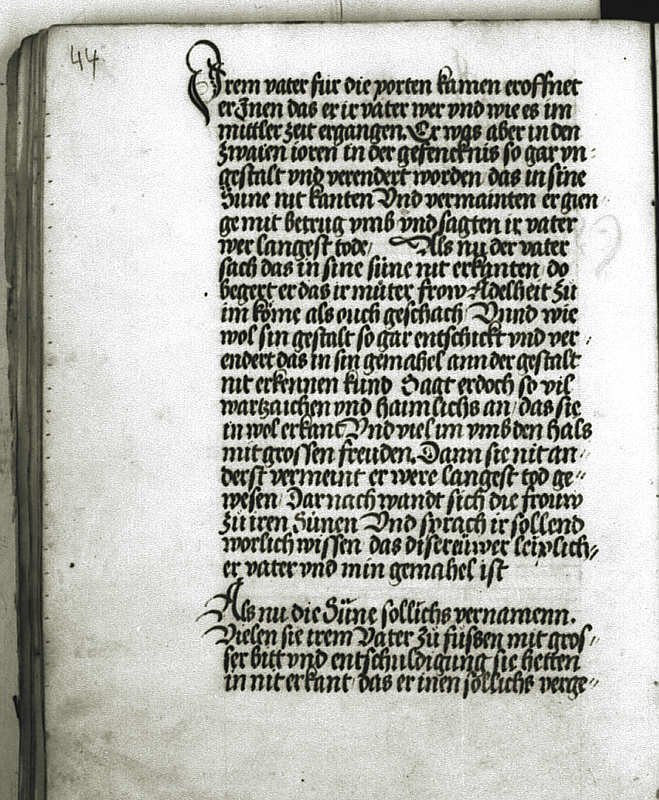 44
Irem vater für die porten kamen eroffnet
er Inen das er ir vater wer vnd wie es im
mittler Zeit ergangen. Er was aber in den
Zwaien ioren in der gefencknis so gar vn-
gestalt vnd verendert worden das in sine
Süne nit kanten Vnd vermainten er gien
ge mit betrug vmb vnd sagten ir vater
wer langest tode / Als nu der vater
sach das in sine süne nit erkanten / do
begert er das ir müter frow Adelheit Zü
im köme als ouch geschach / Vnnd wie
wol sin gestalt so gar entschickt vnd ver-
endert das in sin gemahel ann der gestalt
nit erkennen kund Sagt er doch so vil
wartzaichen vnd haimlichs an / das sie
in wol erkant Vnd viel im vmb den hals
mit grossen freuden. Dann sie nit an-
derst vermeint er were langest tod ge-
wesen / Dar nach wandt sich die frouw
Zü iren Sünen Vnd sprach ir sollend
worlich wissen das dis ereüwer leiplich-
er vater vnd min gemahel ist
Als nu die Süne sollichs vernamenn.
Vielen sie irem Vater Zü füssen mit gros-
ser bitt vnd entschuldigung sie hetten
in nit erkant / das er inen sollichs verge-